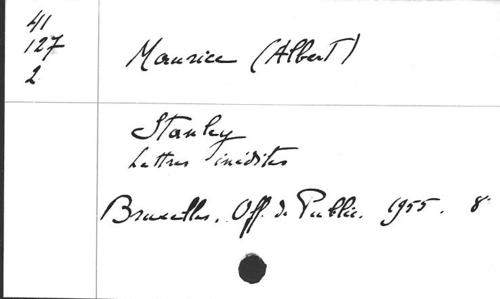 41
127
2
Maurice (Albert)
Stanley
Lettres inédites
Bruxelles, Off. de Public. 1955. 8°